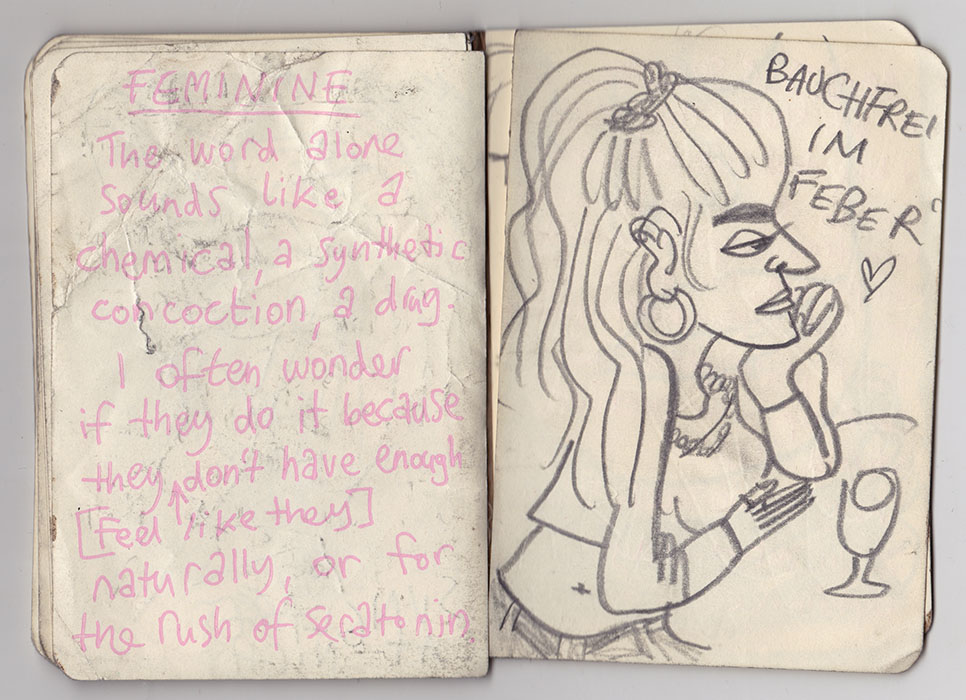 FEMININE
The word alone
sounds like a
chemical, a synthetic
concoction, a drug.
I often wonder
if they do it because
they don't have enough
[feel like they]
naturally, or for
the rush of seratonin.
BAUCHFREI
IM
FEBER